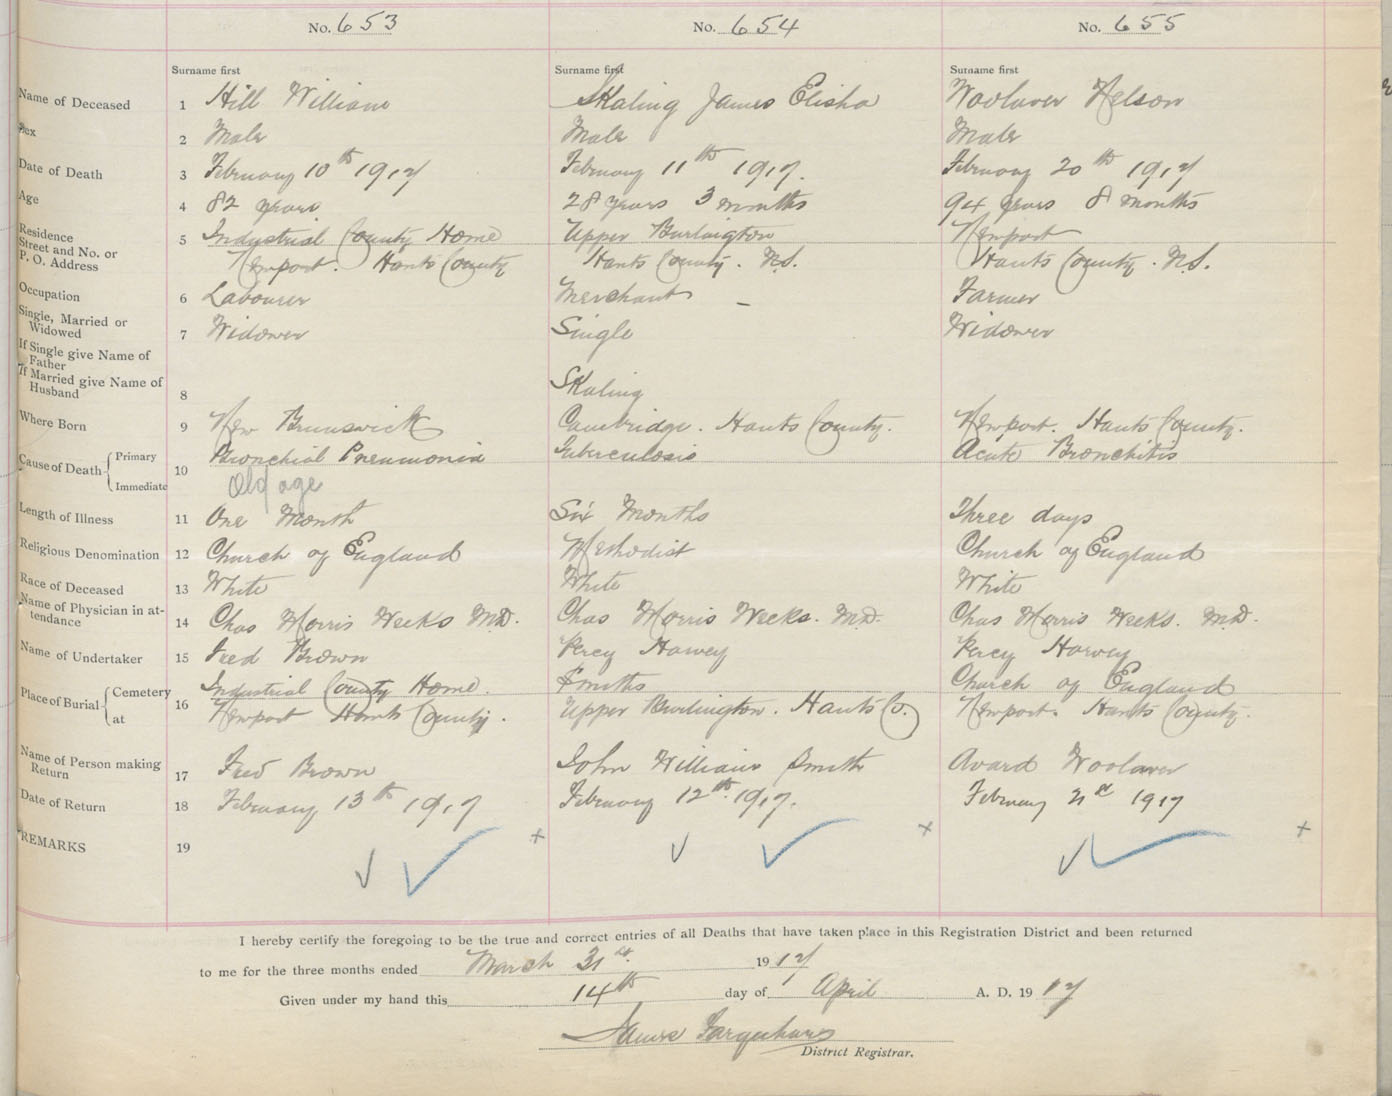 No. 653 No. 654 No. 655
Surname first Surname first Surname first
Name of Deceased 1 Hill William Skaling James Elisha Woolaver Nelson
Sex 2 Male Male Male
Date of Death 3 February 10th 1917 February 11th 1917. February 20th 1917
Age 4 82 years 28 years 3 months 94 years 8 months
Residence 5 Industrial County Home Upper Burlington Newport
Street and No. or
P. O. Address Newport. Hants County Hants County. N.S. Hants County. N.S.
Occupation 6 Labourer Merchant – Farmer
Single, Married or
Widowed 7 Widower Single Widower
If Single give Name of
Father
If Married give Name of
Husband 8 Skaling
Where Born 9 New Brunswick Cambridge. Hants County. Newport. Hants County.
Cause of Death { Primary 10 Bronchial Pneumonia Tuberculosis Acute Bronchitis
Immediate Old age
Length of Illness 11 One Month Six Months Three days
Religious Denomination 12 Church of England Methodist Church of England
Race of Deceased 13 White White White
Name of Physician in at-
tendance 14 Chas Morris Weeks M.D. Chas Morris Weeks. M.D. Chas Morris Weeks. M.D.
Name of Undertaker 15 Fred Brown Percy Harvey Percy Harvey
Place of Burial { Cemetery 16 Industrial County Home. Smiths Church of England
at Newport Hants County. Upper Burlington. Hants Co. Newport. Hants County.
Name of Person making
Return 17 Fred Brown John William Smith Avard Woolaver
Date of Return 18 February 13th 1917 February 12th. 1917. February 21st 1917
REMARKS 19
I hereby certify the foregoing to be the true and correct entries of all Deaths that have taken place in this Registration District and been returned
to me for the three months ended March 31st. 1917
Given under my hand this 14th day of April A. D. 1917
James Farquhar
District Registrar.